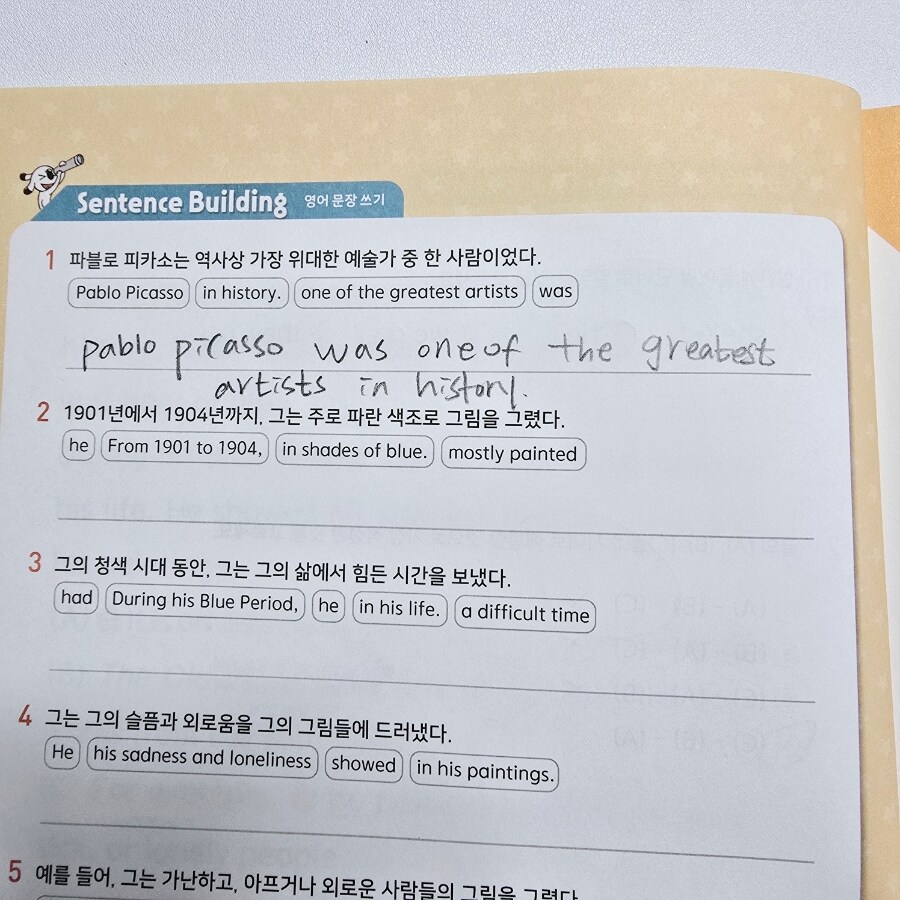 Sentence Building 영어 문장 쓰기
1 파블로 피카소는 역사상 가장 위대한 예술가 중 한 사람이었다.
Pablo Picasso in history. one of the greatest artists was
pablo picasso was one of the greatest
artists in history.
2 1901년에서 1904년까지, 그는 주로 파란 색조로 그림을 그렸다.
he From 1901 to 1904, in shades of blue. mostly painted
3 그의 청색 시대 동안, 그는 그의 삶에서 힘든 시간을 보냈다.
had During his Blue Period, he in his life. a difficult time
4 그는 그의 슬픔과 외로움을 그의 그림들에 드러냈다.
He his sadness and loneliness showed in his paintings.
5 예를 들어, 그는 가난하고, 아프거나 외로운 사람들의 그림을 그렸다.